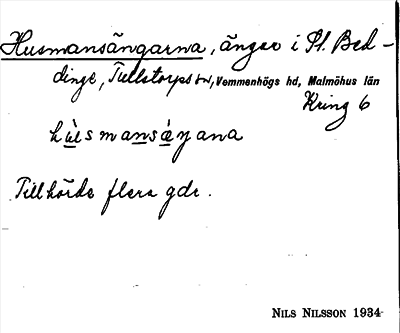 Husmansängarna, ängar i St. Bed-
dinge, Tullstorps sn, Vemmenhögs hd, Malmöhus län
Kring 6
hùsmansáŋana
Tillhörde flera gdr.
NILS NILSSON 1934